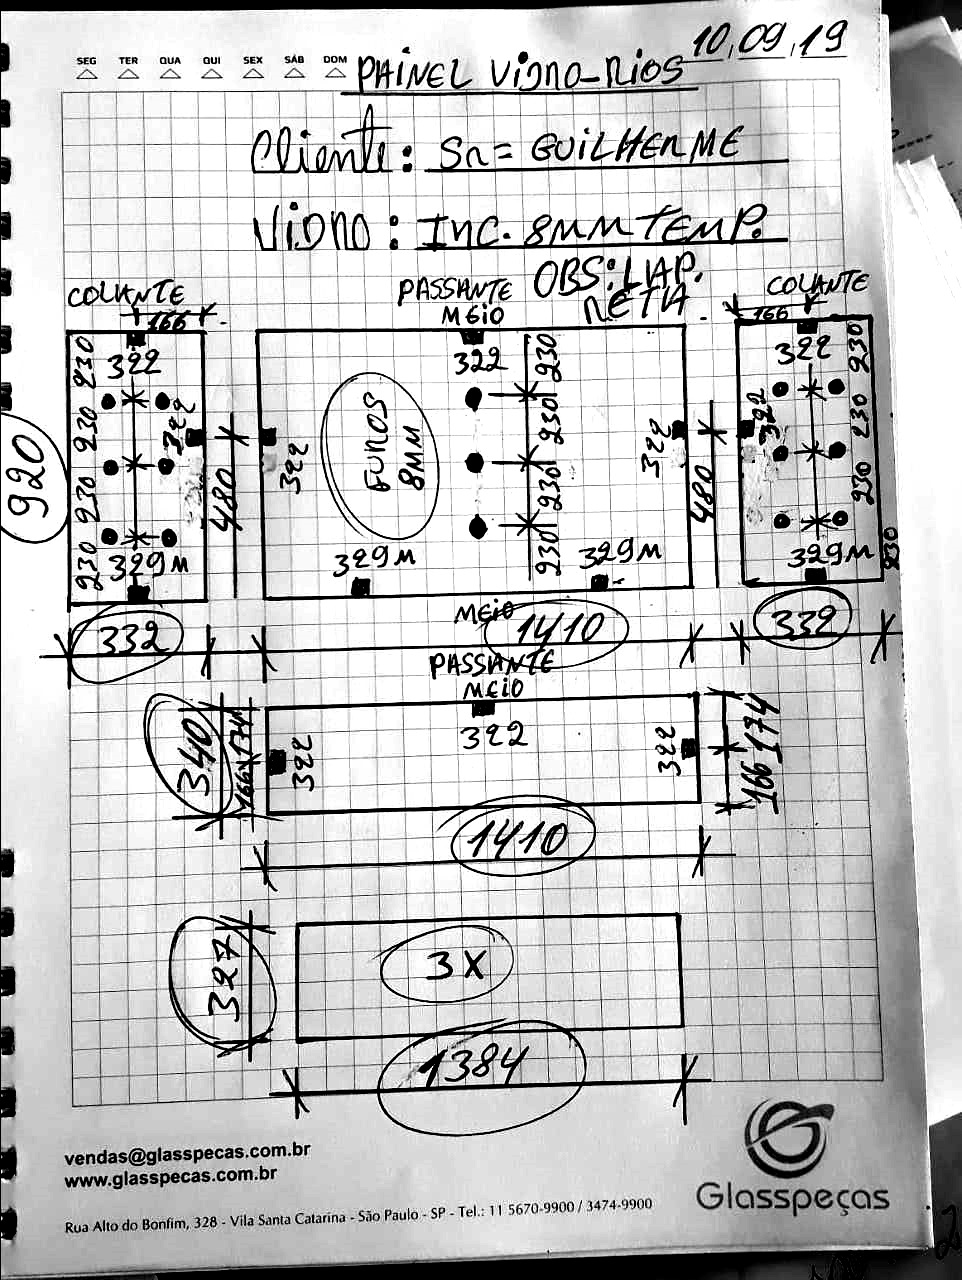 10.09.19
SEG TER QUA QUI SEX SÁB DOM
PAiNEL ViDRO-RiOS
Cliente: SR= GUiLHERME
ViDRO: INC. 8MM TEMP.
OBS: LAP.
RETA
COLANTE
PASSANTE
MEiO
COLANTE
166
166
322
322
322
230
230
230
230
322
322
322
322
230
230
230
230
230
230
230
230
FUROS
8MM
920
480
480
329M
329M
329M
329M
332
MEiO
1410
332
PASSANTE
MEiO
340
166 174
322
322
322
166 174
1410
327
3X
1384
vendas@glasspecas.com.br
www.glasspecas.com.br
Glasspeças
Rua Alto do Bonfim, 328 - Vila Santa Catarina - São Paulo - SP - Tel.: 11 5670-9900 / 3474-9900